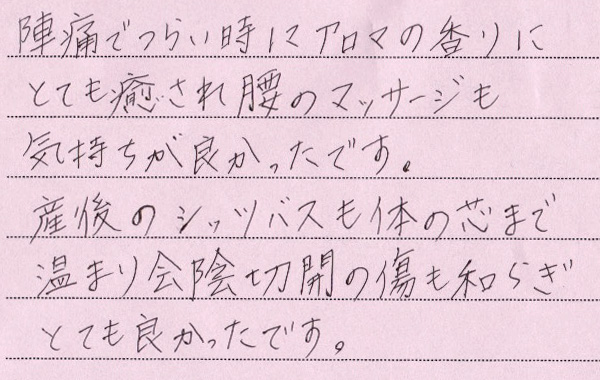 陣痛でつらい時にアロマの香りに
とても癒され腰のマッサージも
気持ちが良かったです。
産後のシッツバスも体の芯まで
温まり会陰切開の傷も和らぎ
とても良かったです。